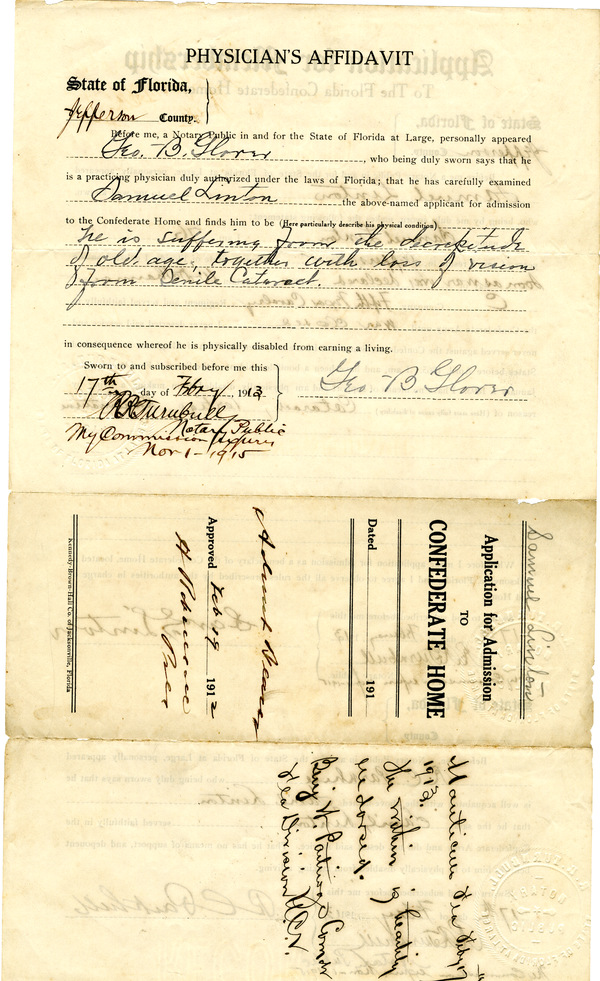 PHYSICIAN'S AFFIDAVIT
State of Florida,
Jefferson County.
Before me, a Notary Public in and for the State of Florida at Large, personally appeared
Geo. B. Glover, who being duly sworn says that he
is a practicing physician duly authorized under the laws of Florida; that he has carefully examined
Samuel Linton the above-named applicant for admission
to the Confederate Home and finds him to be (Here particularly describe his physical condition)
he is suffering from the decrepitude
of old age, together with loss of vision
from Senile Cataract.
in consequence whereof he is physically disabled from earning a living.
Sworn to and subscribed before me this
17th day of Feby, 1913
Geo. B Glover
R R Turnbull
Notary Public
My Commission Expires
Nov 1-1915
Samuel Linton
Application for Admission
TO
CONFEDERATE HOME
Dated 191
Approved Feb 19 1912
H Robinson
Pres
Kennedy-Brown-Hall Co. of Jacksonville, Florida
Monticello Fla Feby 17
1913.
The within is heartily
endorsed.
Comdr
Fla Division U.C.V.